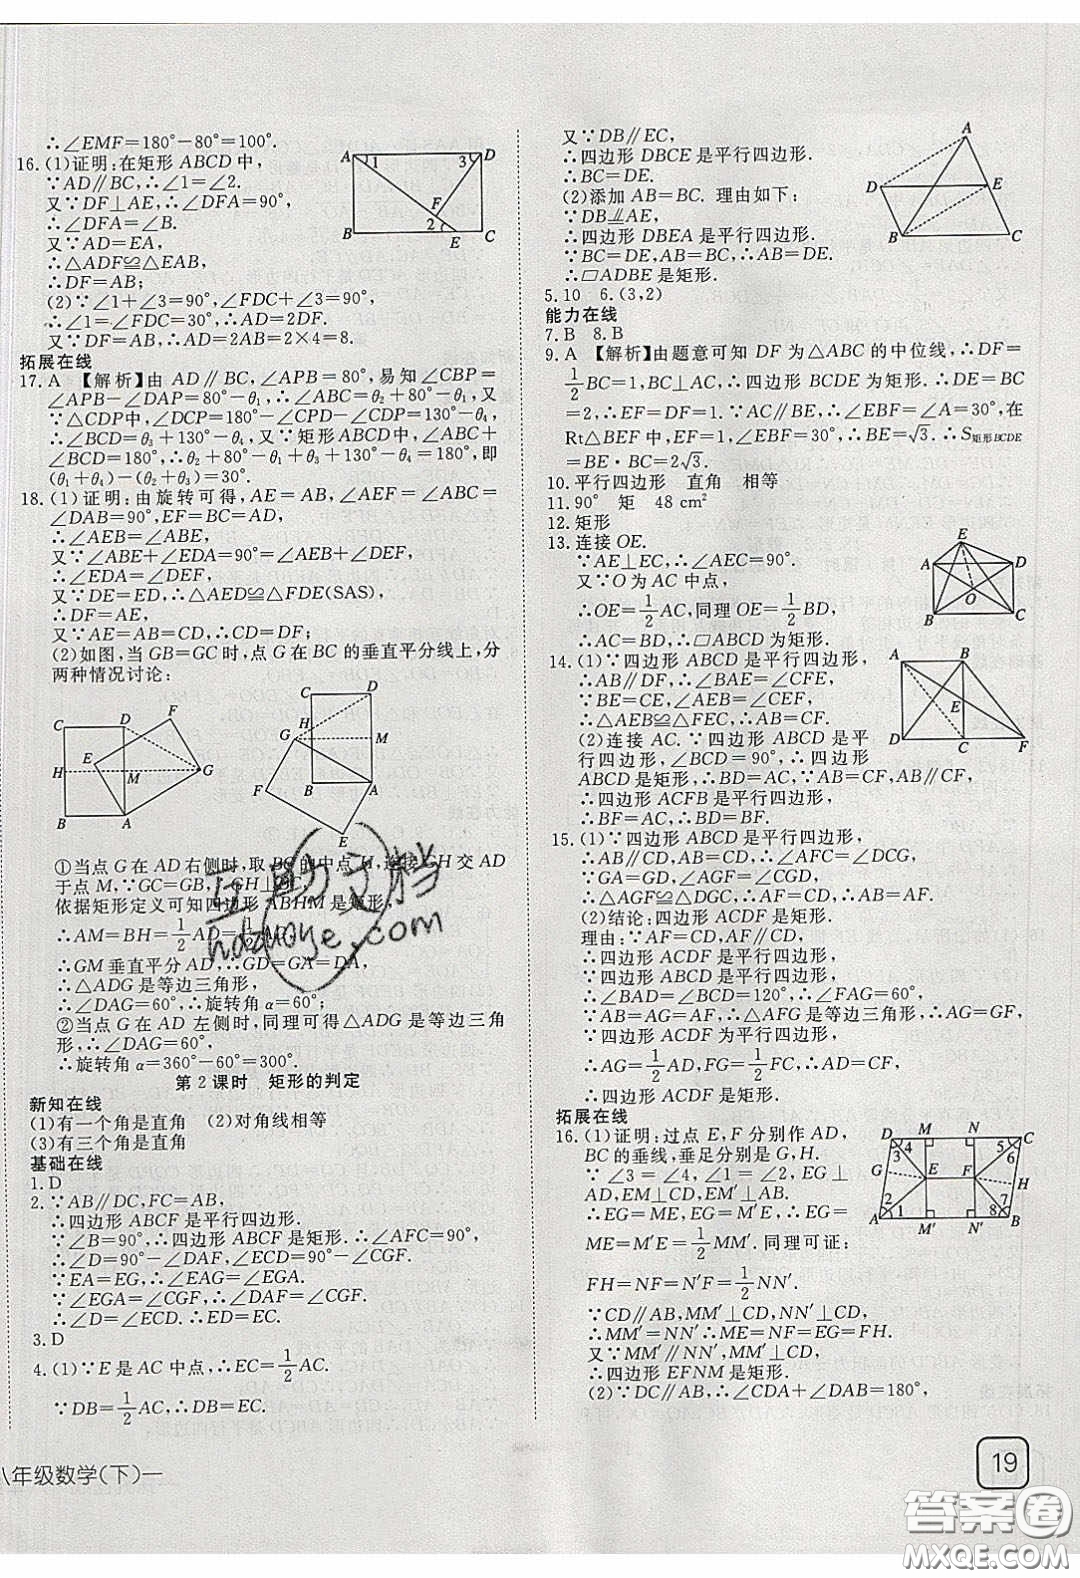 ∴∠EMF=180°-80°=100°.
16.(1)证明:在矩形 ABCD 中,
∵AD∥BC,∴∠1=∠2.
又∵DF⊥AE,∴∠DFA=90°,
∴∠DFA=∠B.
又∵AD=EA,
∴△ADF≌△EAB,
∴DF=AB;
(2)∵∠1+∠3=90°,∠FDC+∠3=90°,
∴∠1=∠FDC=30°,∴AD=2DF.
又∵DF=AB,∴AD=2AB=2×4=8.
拓展在线
17.A 【解析】由 AD∥BC,∠APB=80°,易知∠CBP=
∠APB-∠DAP=80°-θ₁,∴∠ABC=θ₂+80°-θ₁.又
∵△DCP中,∠DCP=180°-∠CPD-∠CDP=130°-θ₄,
∴∠BCD=θ₃+130°-θ₄.又∵矩形ABCD中,∠ABC+
∠BCD=180°,∴θ₂+80°-θ₁+θ₃+130°-θ₄=180°,即
(θ₁+θ₄)-(θ₂+θ₃)=30°.
18.(1)证明:由旋转可得,AE=AB,∠AEF=∠ABC=
∠DAB=90°,EF=BC=AD,
∴∠AEB=∠ABE,
又∵∠ABE+∠EDA=90°=∠AEB+∠DEF,
∴∠EDA=∠DEF,
又∵DE=ED,∴△AED≌△FDE(SAS),
∴DF=AE,
又∵AE=AB=CD,∴CD=DF;
(2)如图,当 GB=GC时,点 G 在 BC 的垂直平分线上,分
两种情况讨论:
①当点 G 在 AD 右侧时,取 BC 的中点 H,连接GH 交 AD
于点 M,∵GC=GB,∴GH⊥BC,
依据矩形定义可知四边形 ABHM 是矩形,
∴AM=BH=1/2AD=1/2AG,
∴GM 垂直平分 AD,∴GD=GA=DA,
∴△ADG 是等边三角形,
∴∠DAG=60°,∴旋转角 α=60°;
②当点 G 在 AD 左侧时,同理可得△ADG 是等边三角
形,∴∠DAG=60°,
∴旋转角 α=360°-60°=300°.
第 2 课时 矩形的判定
新知在线
(1)有一个角是直角 (2)对角线相等
(3)有三个角是直角
基础在线
1.D
2.∵AB∥DC,FC=AB,
∴四边形 ABCF 是平行四边形.
∵∠B=90°,∴四边形 ABCF 是矩形.∴∠AFC=90°,
∴∠D=90°-∠DAF,∠ECD=90°-∠CGF.
∵EA=EG,∴∠EAG=∠EGA.
∵∠EGA=∠CGF,∴∠DAF=∠CGF.
∴∠D=∠ECD.∴ED=EC.
3.D
4.(1)∵E 是 AC 中点,∴EC=1/2AC.
∵DB=1/2AC,∴DB=EC.
又∵DB∥EC,
∴四边形 DBCE 是平行四边形.
∴BC=DE.
(2)添加 AB=BC. 理由如下:
∵DB∥=AE,
∴四边形 DBEA 是平行四边形.
∵BC=DE,AB=BC,∴AB=DE.
∴▱ADBE 是矩形.
5.10 6.(3,2)
能力在线
7.B 8.B
9.A 【解析】由题意可知 DF 为△ABC 的中位线,∴DF=
1/2BC=1,BC⊥AC,∴四边形 BCDE 为矩形.∴DE=BC
=2,∴EF=DF=1.∵AC∥BE,∴∠EBF=∠A=30°,在
Rt△BEF 中,EF=1,∠EBF=30°,∴BE=√3.∴S矩形BCDE
=BE·BC=2√3.
10.平行四边形 直角 相等
11.90° 矩 48 cm²
12.矩形
13.连接 OE.
∵AE⊥EC,∴∠AEC=90°.
又∵O为 AC 中点,
∴OE=1/2AC,同理 OE=1/2BD,
∴AC=BD,∴▱ABCD 为矩形.
14.(1)∵四边形 ABCD 是平行四边形,
∴AB∥DF,∴∠BAE=∠CFE,
∵BE=CE,∠AEB=∠CEF,
∴△AEB≌△FEC,∴AB=CF.
(2)连接 AC.∵四边形 ABCD 是平
行四边形,∠BCD=90°,∴四边形
ABCD 是矩形,∴BD=AC,∵AB=CF,AB∥CF,
∴四边形 ACFB 是平行四边形,
∴BF=AC,∴BD=BF.
15.(1)∵四边形 ABCD 是平行四边形,
∴AB∥CD,AB=CD,∴∠AFC=∠DCG,
∵GA=GD,∠AGF=∠CGD,
∴△AGF≌△DGC,∴AF=CD,∴AB=AF.
(2)结论:四边形 ACDF 是矩形.
理由:∵AF=CD,AF∥CD,
∴四边形 ACDF 是平行四边形,
∴四边形 ABCD 是平行四边形,
∴∠BAD=∠BCD=120°,∴∠FAG=60°,
∵AB=AG=AF,∴△AFG 是等边三角形,∴AG=GF,
∵四边形 ACDF 为平行四边形,
∴AG=1/2AD,FG=1/2CF,∴AD=CF,
∴四边形 ACDF 是矩形.
拓展在线
16.(1)证明:过点 E,F 分别作 AD,
BC 的垂线,垂足分别是 G,H.
∵∠3=∠4,∠1=∠2,EG⊥
AD,EM⊥CD,EM′⊥AB,
∴EG=ME,EG=M′E,∴EG=
ME=M′E=1/2MM′.同理可证:
FH=NF=N′F=1/2NN′.
∵CD∥AB,MM′⊥CD,NN′⊥CD,
∴MM′=NN′∴ME=NF=EG=FH.
又∵MM′∥NN′,MM′⊥CD,
∴四边形 EFNM 是矩形.
(2)∵DC∥AB,∴∠CDA+∠DAB=180°,
八年级数学(下)一
19
互助文档
hdzuoye.com
答案圈
MXQE.COM